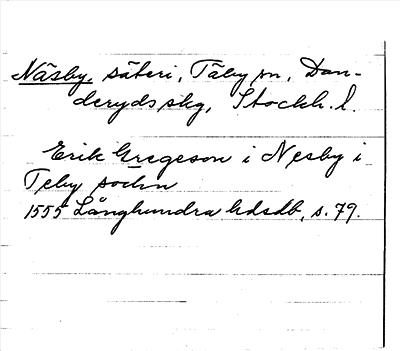 Näsby, säteri, Täby sn, Dan-
deryds skg, Stockh. l.
Erik Gregeson i Nesby i
Teby sochn
1555 Långhundra hdsdb, s. 79.